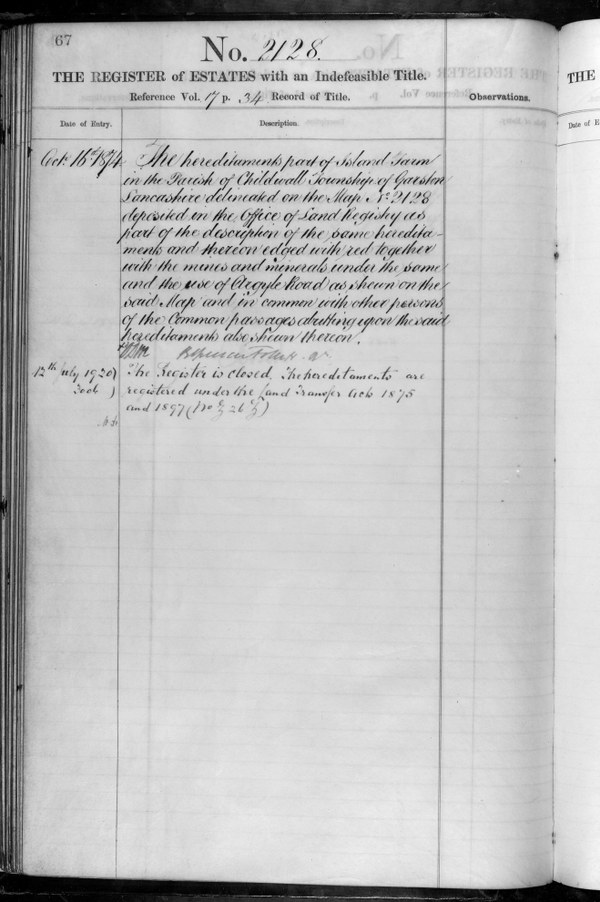 67
No. 2128.
THE REGISTER of ESTATES with an Indefeasible Title.
Reference Vol. 17 p. 34 Record of Title.
Observations.
Date of Entry.
Description.
Octr. 16th 1874
The hereditaments part of Island Farm
in the Parish of Childwall Township of Garston
Lancashire delineated on the Map No. 2128
deposited in the Office of Land Registry as
part of the description of the same heredita-
ments and thereon edged with red together
with the mines and minerals under the same
and the use of Argyle Road as shewn on the
said Map and in common with other persons
of the Common passages abutting upon the said
hereditaments also shewn thereon.
12th July 1920
3006
The Register is closed. The hereditaments are
registered under the Land Transfer Acts 1875
and 1897
THE
Date of E